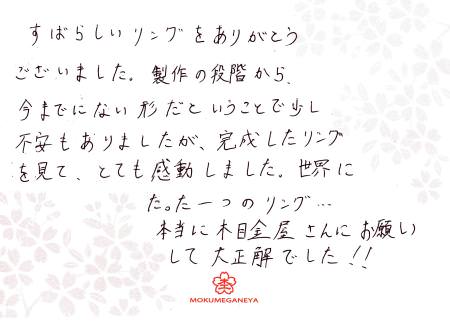 すばらしいリングをありがとう
ございました。製作の段階から、
今までにない形だということで少し
不安もありましたが、完成したリング
を見て、とても感動しました。世界に
たった一つのリング…
本当に木目金屋さんにお願い
して大正解でした!!
MOKUMEGANEYA